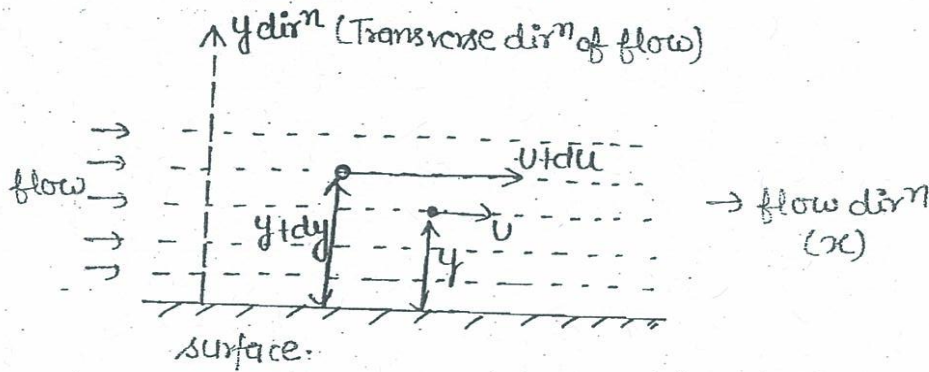 y dirⁿ (Transverse dirⁿ of flow)
u+du
flow
y+dy
y
u
→ flow dirⁿ
(x)
surface.